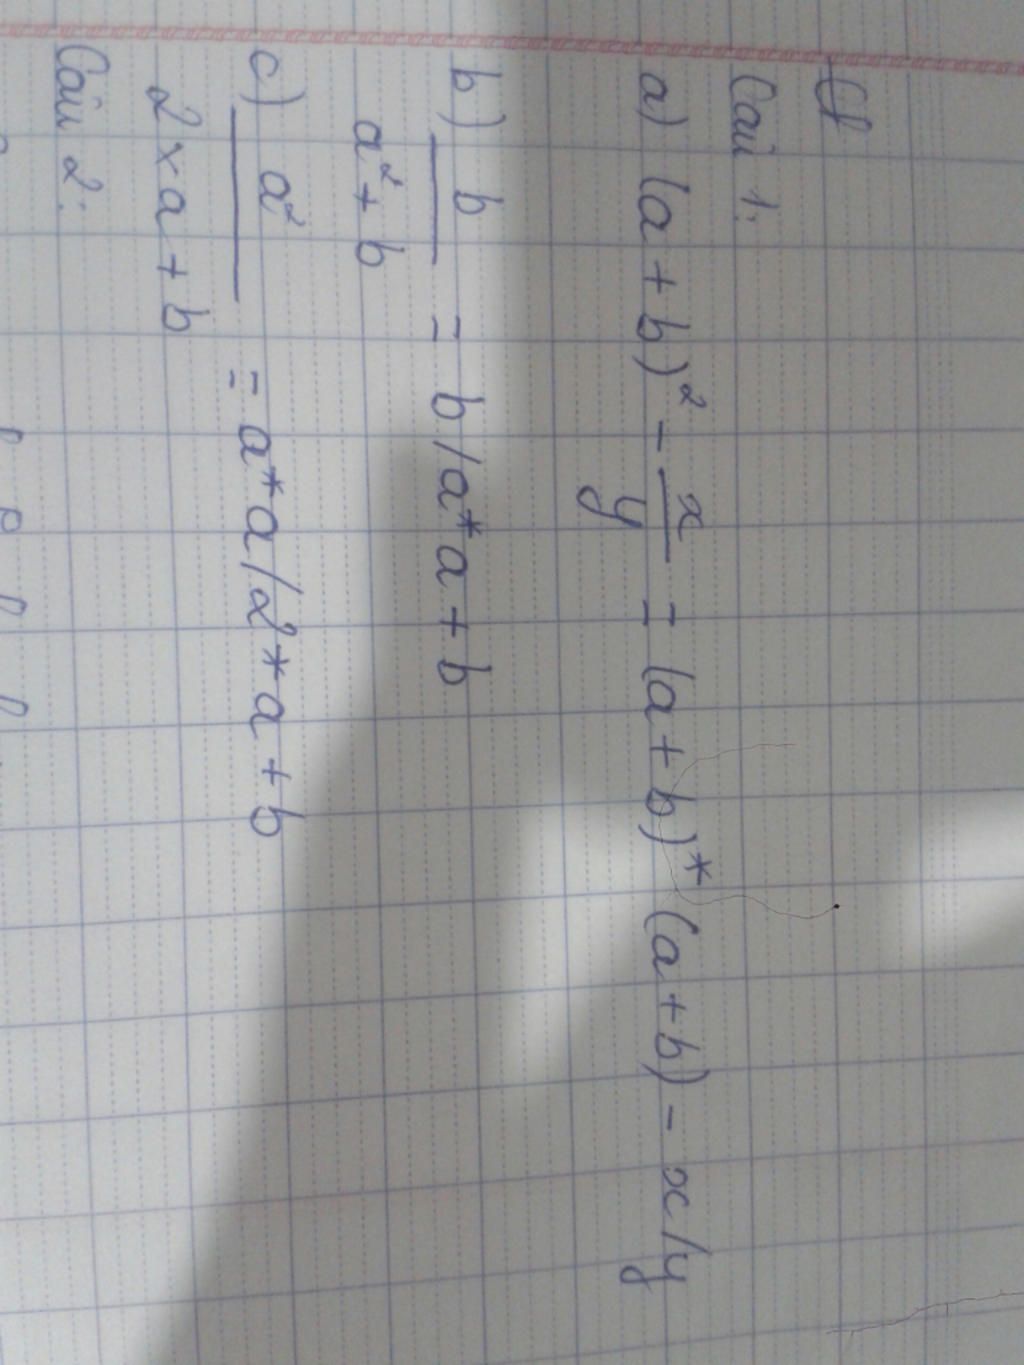 Câu 1:
a) (a + b)² - x/y = (a + b)* (a + b) - x/y
b) b/a² + b = b/a*a + b
c) a²/2 × a + b = a*a/2*a + b
Câu 2: